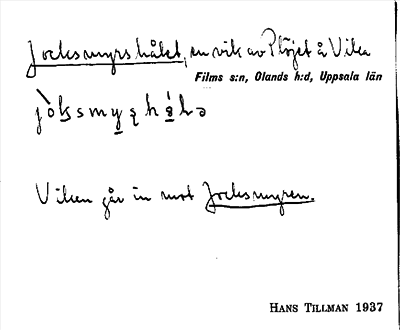 Jocksmyrshålet, en vik av Plöjet å Vika
Films s:n, Olands h:d, Uppsala län
Viken går in mot Jocksmyren.
HANS TILLMAN 1937